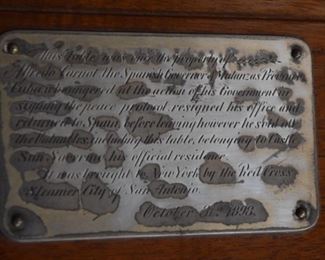 This Table was once the property of
Alfredo Carnot the Spanish Governor of Matanzas Province
Cuba who angered at the action of his Government in
signing the peace protocol, resigned his office and
returned to Spain, before leaving however he sold all
the valuables, including this Table, belonging to
San Severino his official residence.
It was brought to New York by the Red Cross
Steamer City of San Antonio.
October 31st 1898.